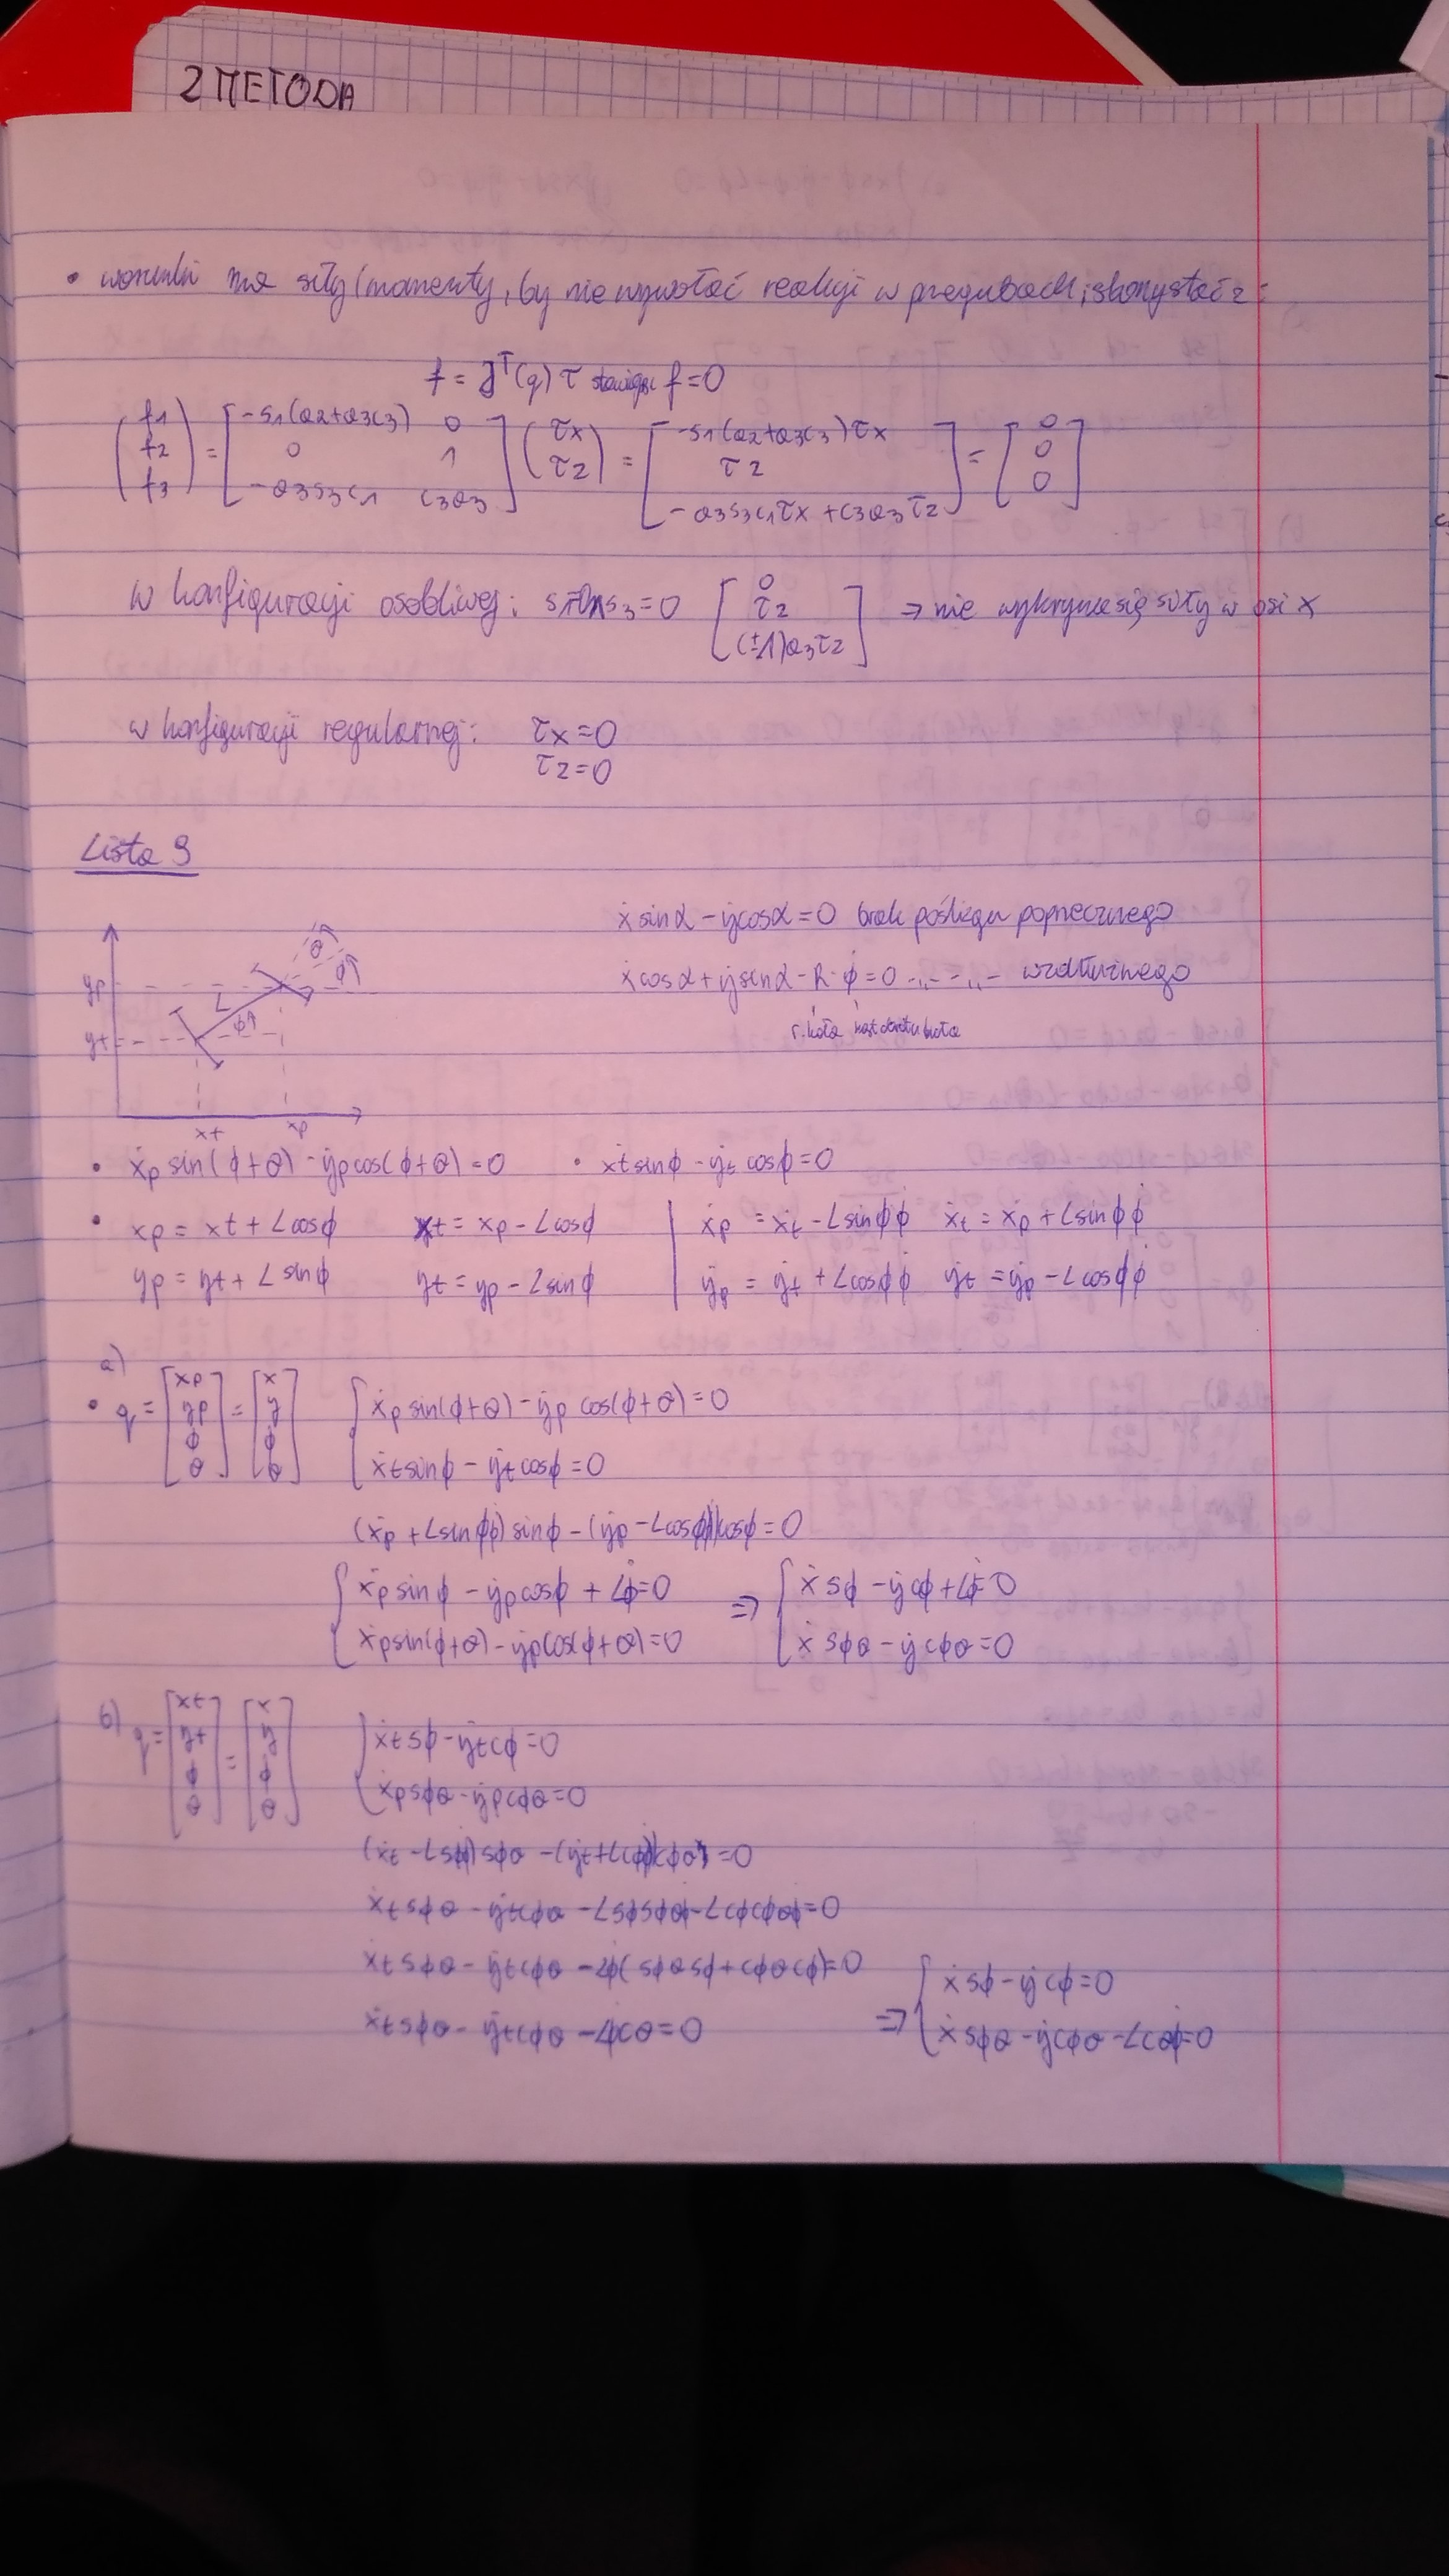 2 METODA
• warunki na siły/momenty, by nie wywołać reakcji w przegubach, skorzystać z:
f = J^T(q) τ stawiając f=0
(f1 f2 f3) = [-s1(a2+a3c3) 0; 0 1; -a3s3c1 c3a3] (τx τz) = [-s1(a2+a3c3)τx; τz; -a3s3c1τx + c3a3τz] = [0 0 0]
w konfiguracji osobliwej: s1=0 ∧ s3=0 [0; τz; (±1)a3τz] ⇒ nie wykrywa się siły w osi x
w konfiguracji regularnej: τx=0
τz=0
Lista 9
ẋ sinα - ẏcosα = 0 brak poślizgu poprzecznego
ẋ cosα + ẏ sinα - R·φ̇ = 0 -„- -„- wzdłużnego
r. koła kąt obrotu koła
yp L θ ϕ
yt ϕ
xt xp
• ẋp sin(ϕ+θ) - ẏp cos(ϕ+θ) = 0 • ẋt sinϕ - ẏt cosϕ = 0
• xp = xt + Lcosϕ xt = xp - Lcosϕ | ẋp = ẋt - Lsinϕ ϕ̇ ẋt = ẋp + Lsinϕ ϕ̇
yp = yt + L sinϕ yt = yp - Lsinϕ | ẏp = ẏt + Lcosϕ ϕ̇ ẏt = ẏp - Lcosϕ ϕ̇
a)
• q = [xp yp ϕ θ] = [x y ϕ θ] { ẋp sin(ϕ+θ) - ẏp cos(ϕ+θ) = 0
ẋt sinϕ - ẏt cosϕ = 0
(ẋp + Lsinϕ ϕ̇) sinϕ - (ẏp - Lcosϕ ϕ̇)cosϕ = 0
{ ẋp sinϕ - ẏp cosϕ + Lϕ̇ = 0 ⇒ { ẋ sϕ - ẏ cϕ + Lϕ̇ = 0
ẋp sin(ϕ+θ) - ẏp cos(ϕ+θ) = 0 ẋ sϕθ - ẏ cϕθ = 0
b) q = [xt yt ϕ θ] = [x y ϕ θ] { ẋt sϕ - ẏt cϕ = 0
ẋp sϕθ - ẏp cϕθ = 0
(ẋt - Lsϕ ϕ̇) sϕθ - (ẏt + Lcϕ ϕ̇)cϕθ = 0
ẋt sϕθ - ẏt cϕθ - Lsϕ sϕθ ϕ̇ - Lcϕ cϕθ ϕ̇ = 0
ẋt sϕθ - ẏt cϕθ - Lϕ̇ (sϕθ sϕ + cϕθ cϕ) = 0
ẋt sϕθ - ẏt cϕθ - Lϕ̇ cθ = 0 ⇒ { ẋ sϕ - ẏ cϕ = 0
ẋ sϕθ - ẏ cϕθ - Lcθ ϕ̇ = 0